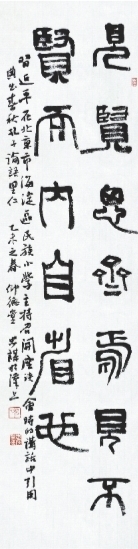 見賢思齊焉見不
賢而內自省也
習近平在北京市海淀區民族小學主持召開座談會時的講話中引用
典出春秋孔子論語里仁 乙未之春 仰德堂